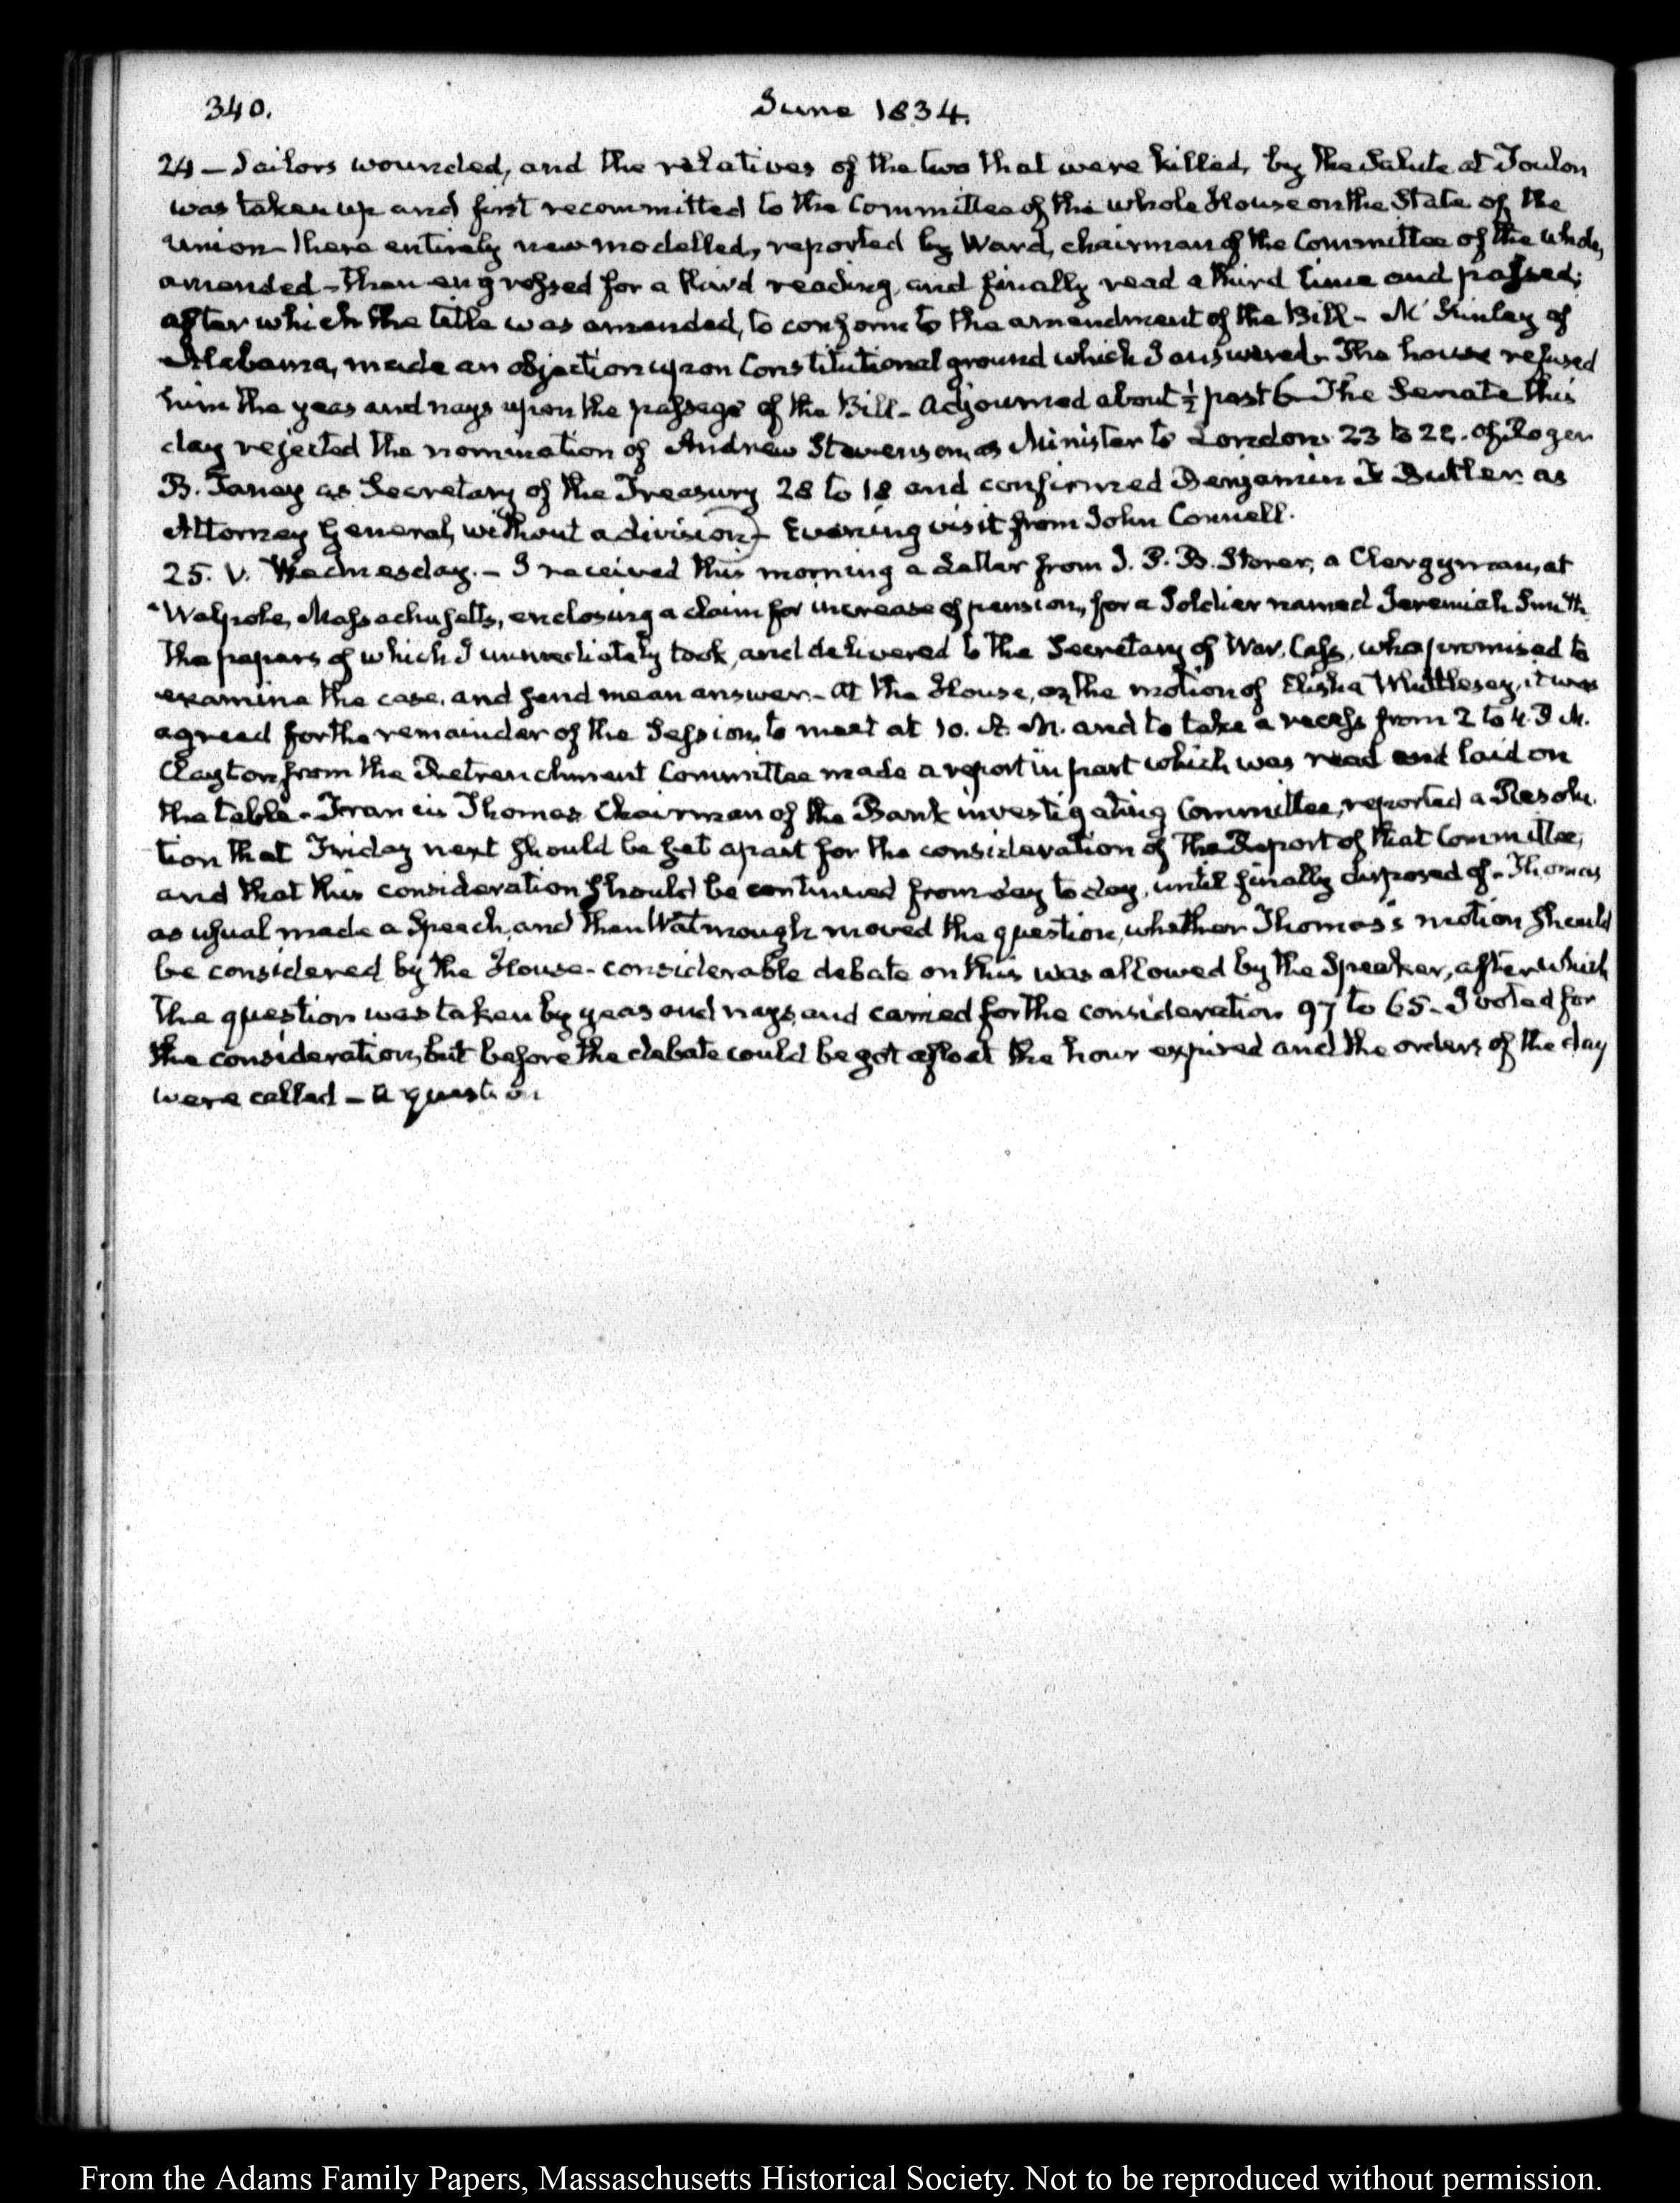 340.
June 1834.
24 — Sailors wounded, and the relatives of the two that were killed, by the Salute at Toulon
was taken up and first recommitted to the Committee of the whole House on the State of the
Union — there entirely new modelled, reported by Ward, chairman of the Committee of the whole,
amended — then engrossed for a third reading, and finally read a third time and passed;
after which the title was amended, to conform to the amendment of the Bill — McKinley of
Alabama, made an objection upon Constitutional ground which I answered — The house refused
him the yeas and nays upon the passage of the Bill — Adjourned about ½ past 6 — The Senate this
day rejected the nomination of Andrew Stevenson, as Minister to London 23 to 22. of Roger
B. Taney as Secretary of the Treasury 28 to 18 and confirmed Benjamin F Butler as
Attorney General, without a division — Evening visit from John Connell.
25. V. Wednesday. — I received this morning a Letter from J. P. B. Storer, a Clergyman, at
Walpole, Massachusetts, enclosing a claim for increase of pension, for a Soldier named Jeremiah Smith
the papers of which I immediately took, and delivered to the Secretary of War, Cass, who promised to
examine the case, and send me an answer — At the House, on the motion of Elisha Whittlesey, it was
agreed for the remainder of the Session, to meet at 10. A. M. and to take a recess from 2 to 4. P. M.
Clayton, from the Retrenchment Committee made a report in part which was read and laid on
the table — Francis Thomas Chairman of the Bank investigating Committee, reported a Resolu-
tion that Friday next should be set apart for the consideration of the Report of that Committee,
and that this consideration should be continued from day to day, until finally disposed of — Thomas
as usual made a Speech, and then Watmough moved the question, whether Thomas's motion should
be considered by the House — considerable debate on this was allowed by the Speaker, after which
the question was taken by yeas and nays, and carried for the consideration 97 to 65 — I voted for
the consideration, but before the debate could be got afloat the hour expired and the orders of the day
were called — a question
From the Adams Family Papers, Massachusetts Historical Society. Not to be reproduced without permission.